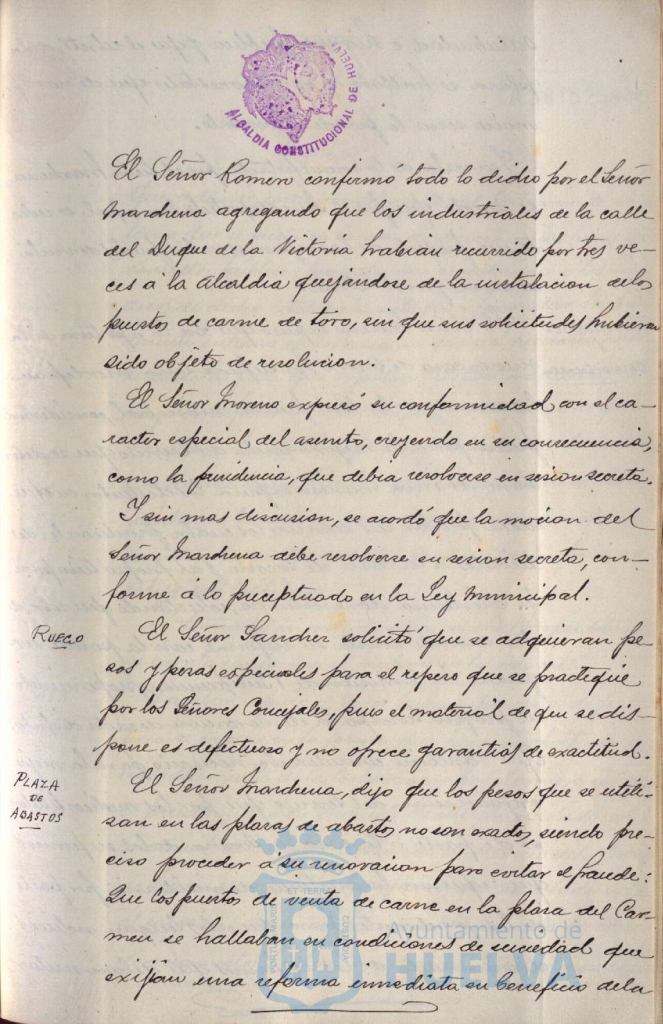 ALCALDIA CONSTITUCIONAL DE HUELVA
El Señor Romero confirmó todo lo dicho por el Señor
Marchena agregando que los industriales de la calle
del Duque de la Victoria habian recurrido por tres ve-
ces á la Alcaldia quejándose de la instalacion de los
puestos de carne de toro, sin que sus solicitudes hubieran
sido objeto de resolucion.
El Señor Moreno expresó su conformidad con el ca-
racter especial del asunto, creyendo en su consecuencia,
como la presidencia, que debia resolverse en sesion secreta.
Y sin mas discusion, se acordó que la mocion del
Señor Marchena debe resolverse en sesion secreta, con-
forme á lo preceptuado en la Ley Municipal.
RUEGO
El Señor Sanchez solicitó que se adquieran pe-
sos y pesas especiales para el repeso que se practique
por los Señores Concejales, pues el material de que se dis-
pone es defectuoso y no ofrece garantias de exactitud.
PLAZA
DE
ABASTOS
El Señor Marchena, dijo que los pesos que se utili-
zan en las plazas de abastos no son exactos, siendo pre-
ciso proceder á su renovacion para evitar el fraude:
Que los puestos de venta de carne en la plaza del Car-
men se hallaban en condiciones de suciedad que
exijian una reforma inmediata en beneficio de la
Ayuntamiento de
HUELVA